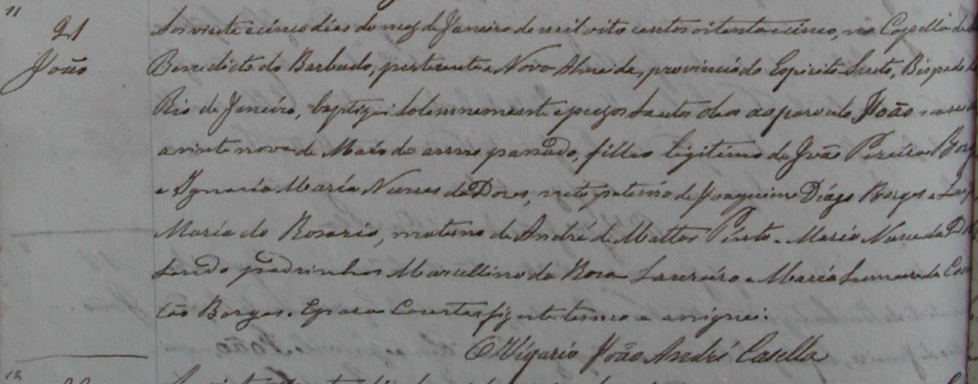 21
João
Aos vinte e cinco dias do mez de Janeiro de mil oito centos oitenta e cinco, na Capella de
Benedicto do Barbado, pertencente a Nova Almeida, provincia do Espirito Santo, Bispado do
Rio de Janeiro, baptizei solemnemente e puz os Santos oleos ao parvulo João nascido
a vinte nove de Maio do anno passado, filho legitimo de João Pereira Borges
e Ignacia Maria Nunes das Dores, neto paterno de Joaquim Diágo Borges e
Maria do Rosario, materno de André de Mattos Pinto e Maria Nunes das
Sendo padrinhos Marcellino da Rosa Loureiro e Maria da
ção Borges. E para Constar fiz este termo e assignei.
O Vigario João André Casella